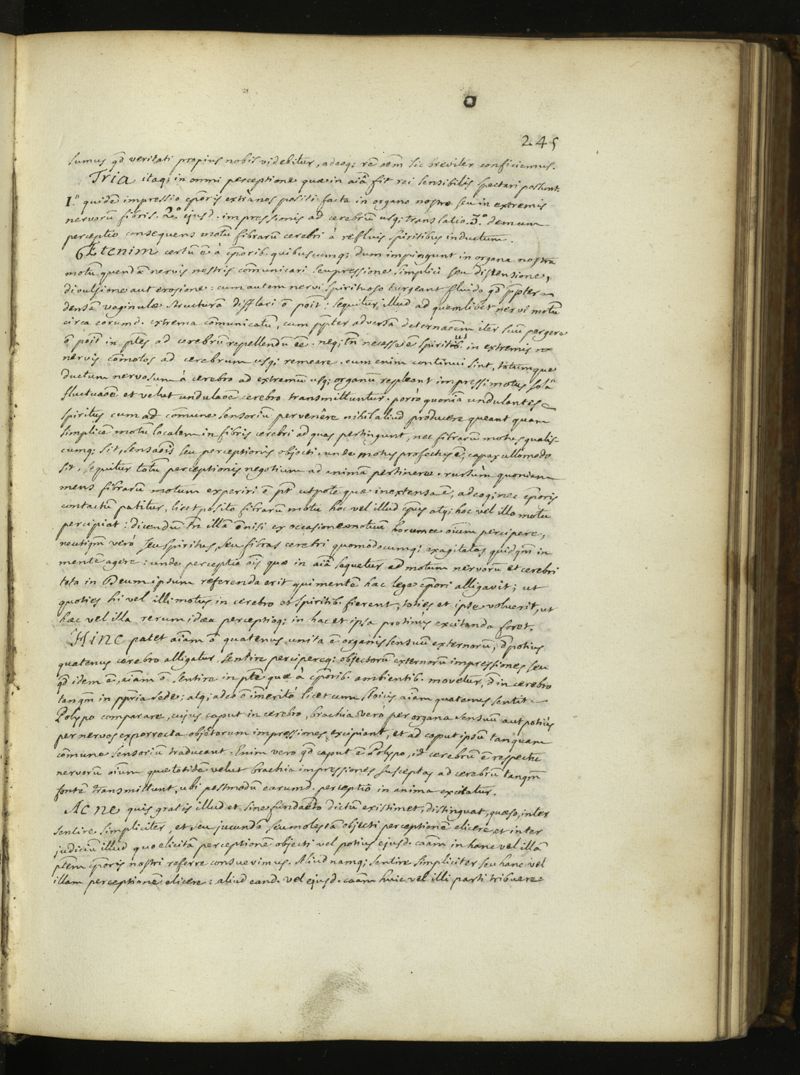 245
sumus qd veritati propius nobis videbitur, adeoq; rē oēm sic breviter conficiemus.
Tria itaq; in omni perceptione quæ in aīā fit rei sensibilis spectari possunt.
1.º quidē impressio cporis extra nos positi facta in organo nostro seu in extremis
nervorū fibris. 2.º ejusd. impressionis ad cerebrū usq; translatio. 3.º demum
perceptio consequens motū fibrarū cerebri á refluis spiritibus inductum.
Etenim certū ē á cporib. quibuscumq; dum impingunt in organa nostra
motū quendā nervis nostris comunicari seu pressione simplici seu distensione,
divulsione aut erosione: cum autem nervi spirituoso turgeant fluido qd ppter
densā vaginulæ structurā difflari ō poīt; sequitur, illud ad quemlibet nervi motū
circa eorumd. extrema cōmunicatū, cum ppter adversā iter suū pergere
ō poīt in ptes ad cerebrū repellendū ēē. neq; tn̄ necesse ē spiritus in extremis
nervis cōmotos ad cerebrum usq; remeare. cum enim continui sint, totumque
ductum nervosum á cerebro ad extremū usq; organū repleant impressi motus solā
fluctuaōe et velut undulaōe cerebro transmittuntur. porro quoniā undulantes
spiritus cum ad cōmune sensorium pervenēre nihil aliud producere queant quam
simplicē motū localem in fibris cerebri ad quas pertingunt, nec fibrarū motus, qualis-
cumq; sit, sensaōis seu perceptionis objecti, unde motus profectus ē, capax ullomodo
sit, sequitur totū perceptionis negotium ad animā pertinere. rursùm quoniam
mens fibrarū motum experiri ō pt̄ utpote quæ inextensa ē, adeoq; nec cporis
contactū patitur, licet posito fibrarū motu hoc vel illud cpus atq; hoc vel illo motu
percipiat: dicendū tn̄ illā ōnisi ex occasione motuum horumce oīum percipere,
neutiqm̄ verò seu spiritus, seu fibras cerebri quomodocumq; exagitatas quidqm̄ in
mentē agere: unde perceptio oīs quæ in aīā sequetur ad motum nervorū et cerebri
tota in Deum ipsum referenda erit qui mentē hac lege cpori alligavit; ut
quoties hi vel illi motus in cerebro et spiritib. fierent, toties et ipse voluerit, ut
hæc vel illa rerum idæa perceptioq; in hac et ipsa protinùs excitanda foret.
Hinc patet aīam ō quatenus unita ē organis sensuū externorū, potius
quatenus cerebro alligatur sentire percipereq; objectorū externorū impressiones, seu
qd idem ē, aīam ō sentire in pte quæ á cporib. ambientib. movetur, in cerebro
tanqm̄ in ppria sede; atq; adeo ō īmeritò licet cum Stoicis aīam quatenus sentit
Polypo comparare, cujus caput in cerebro, brachia vero per organa sensuū aut potius
per nervos exporrecta objectorum impressiones excipiant, et ad caput ipsū tanquam
cōmune sensoriū traducant. Enim vero qd caput ē Polypo, id cerebrū ē respectu
nervorū oīum quæ totidē velut brachia impressiones susceptas ad cerebrū tanqm̄
fontē transmittunt, ubi postmodū earumd. perceptio in anima excitatur.
Ac ne quis gratis illud et sine fundaēto dictū existimet, distinguat, quæso, inter
sentire simpliciter, et seu jucundā seu molestā objecti perceptionē elicere, et inter
judiciū illud quo elicitā perceptionē objecti vel potius ejusd. cāam in hanc vel illā
ptem cporis nostri referre consuevimus. Aliud namq; sentire simpliciter seu hanc vel
illam perceptionē elicere: aliud eand. vel ejusd. cāam huic vel illi parti tribuere